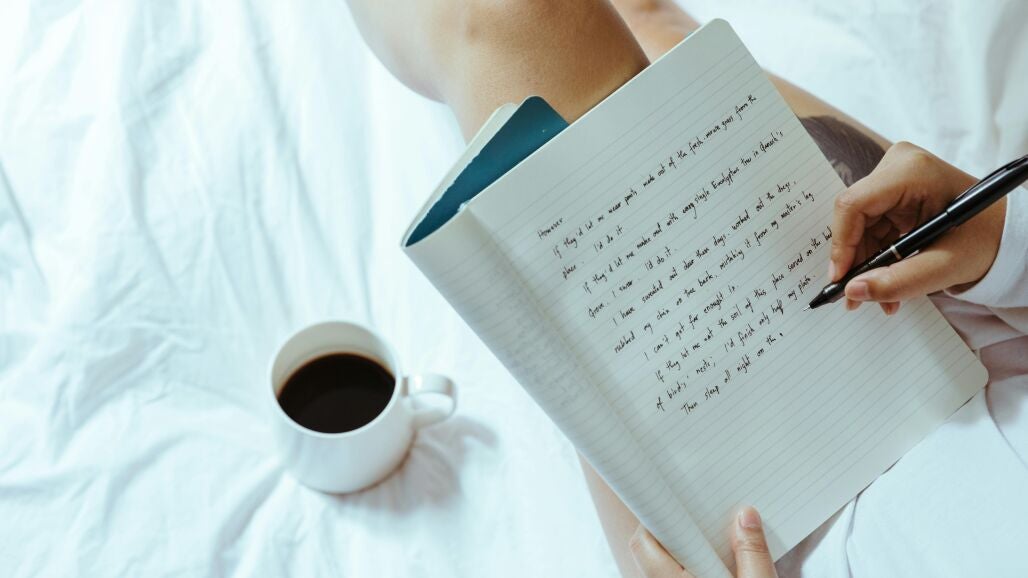 However
If they'd let me wear pants made out of the fresh-minute grass from the
place. I'd do it
If they'd let me make out with every single Eucalyptus tree in
Grove. I swear. I'd do it.
I have sweated out dear them days. worked out the dregs,
rubbed my skin on tree bark, mistaking it from my master's leg
I can't get far enough in.
If they let me eat the soil of this place served on the bed
of birds' nests; I'd finish only half my plate.
Then sleep all night on the